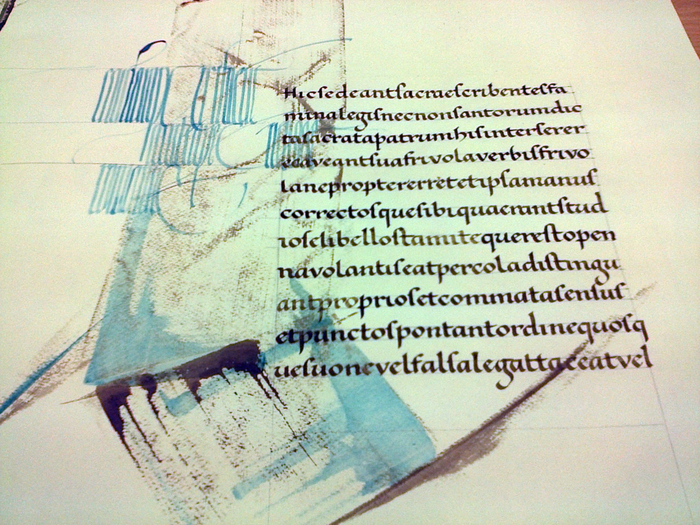 Hicſedeantſacraeſcribenteſfa
minalegiſnecnonſantorumdic
taſacratapatrumhiſinterſerer
ecaveantſuafrivolaverbiſfrivo
laneproptererretetipſamanuſ
correctoſqueſibiquaerantſtud
ioſelibelloſtamitequereſtopen
navolantiſeatpercoladiſtingu
antproprioſetcommataſenſuſ
etpunctoſpontantordinequoſq
ueſuonevelfalſalegattaceatvel